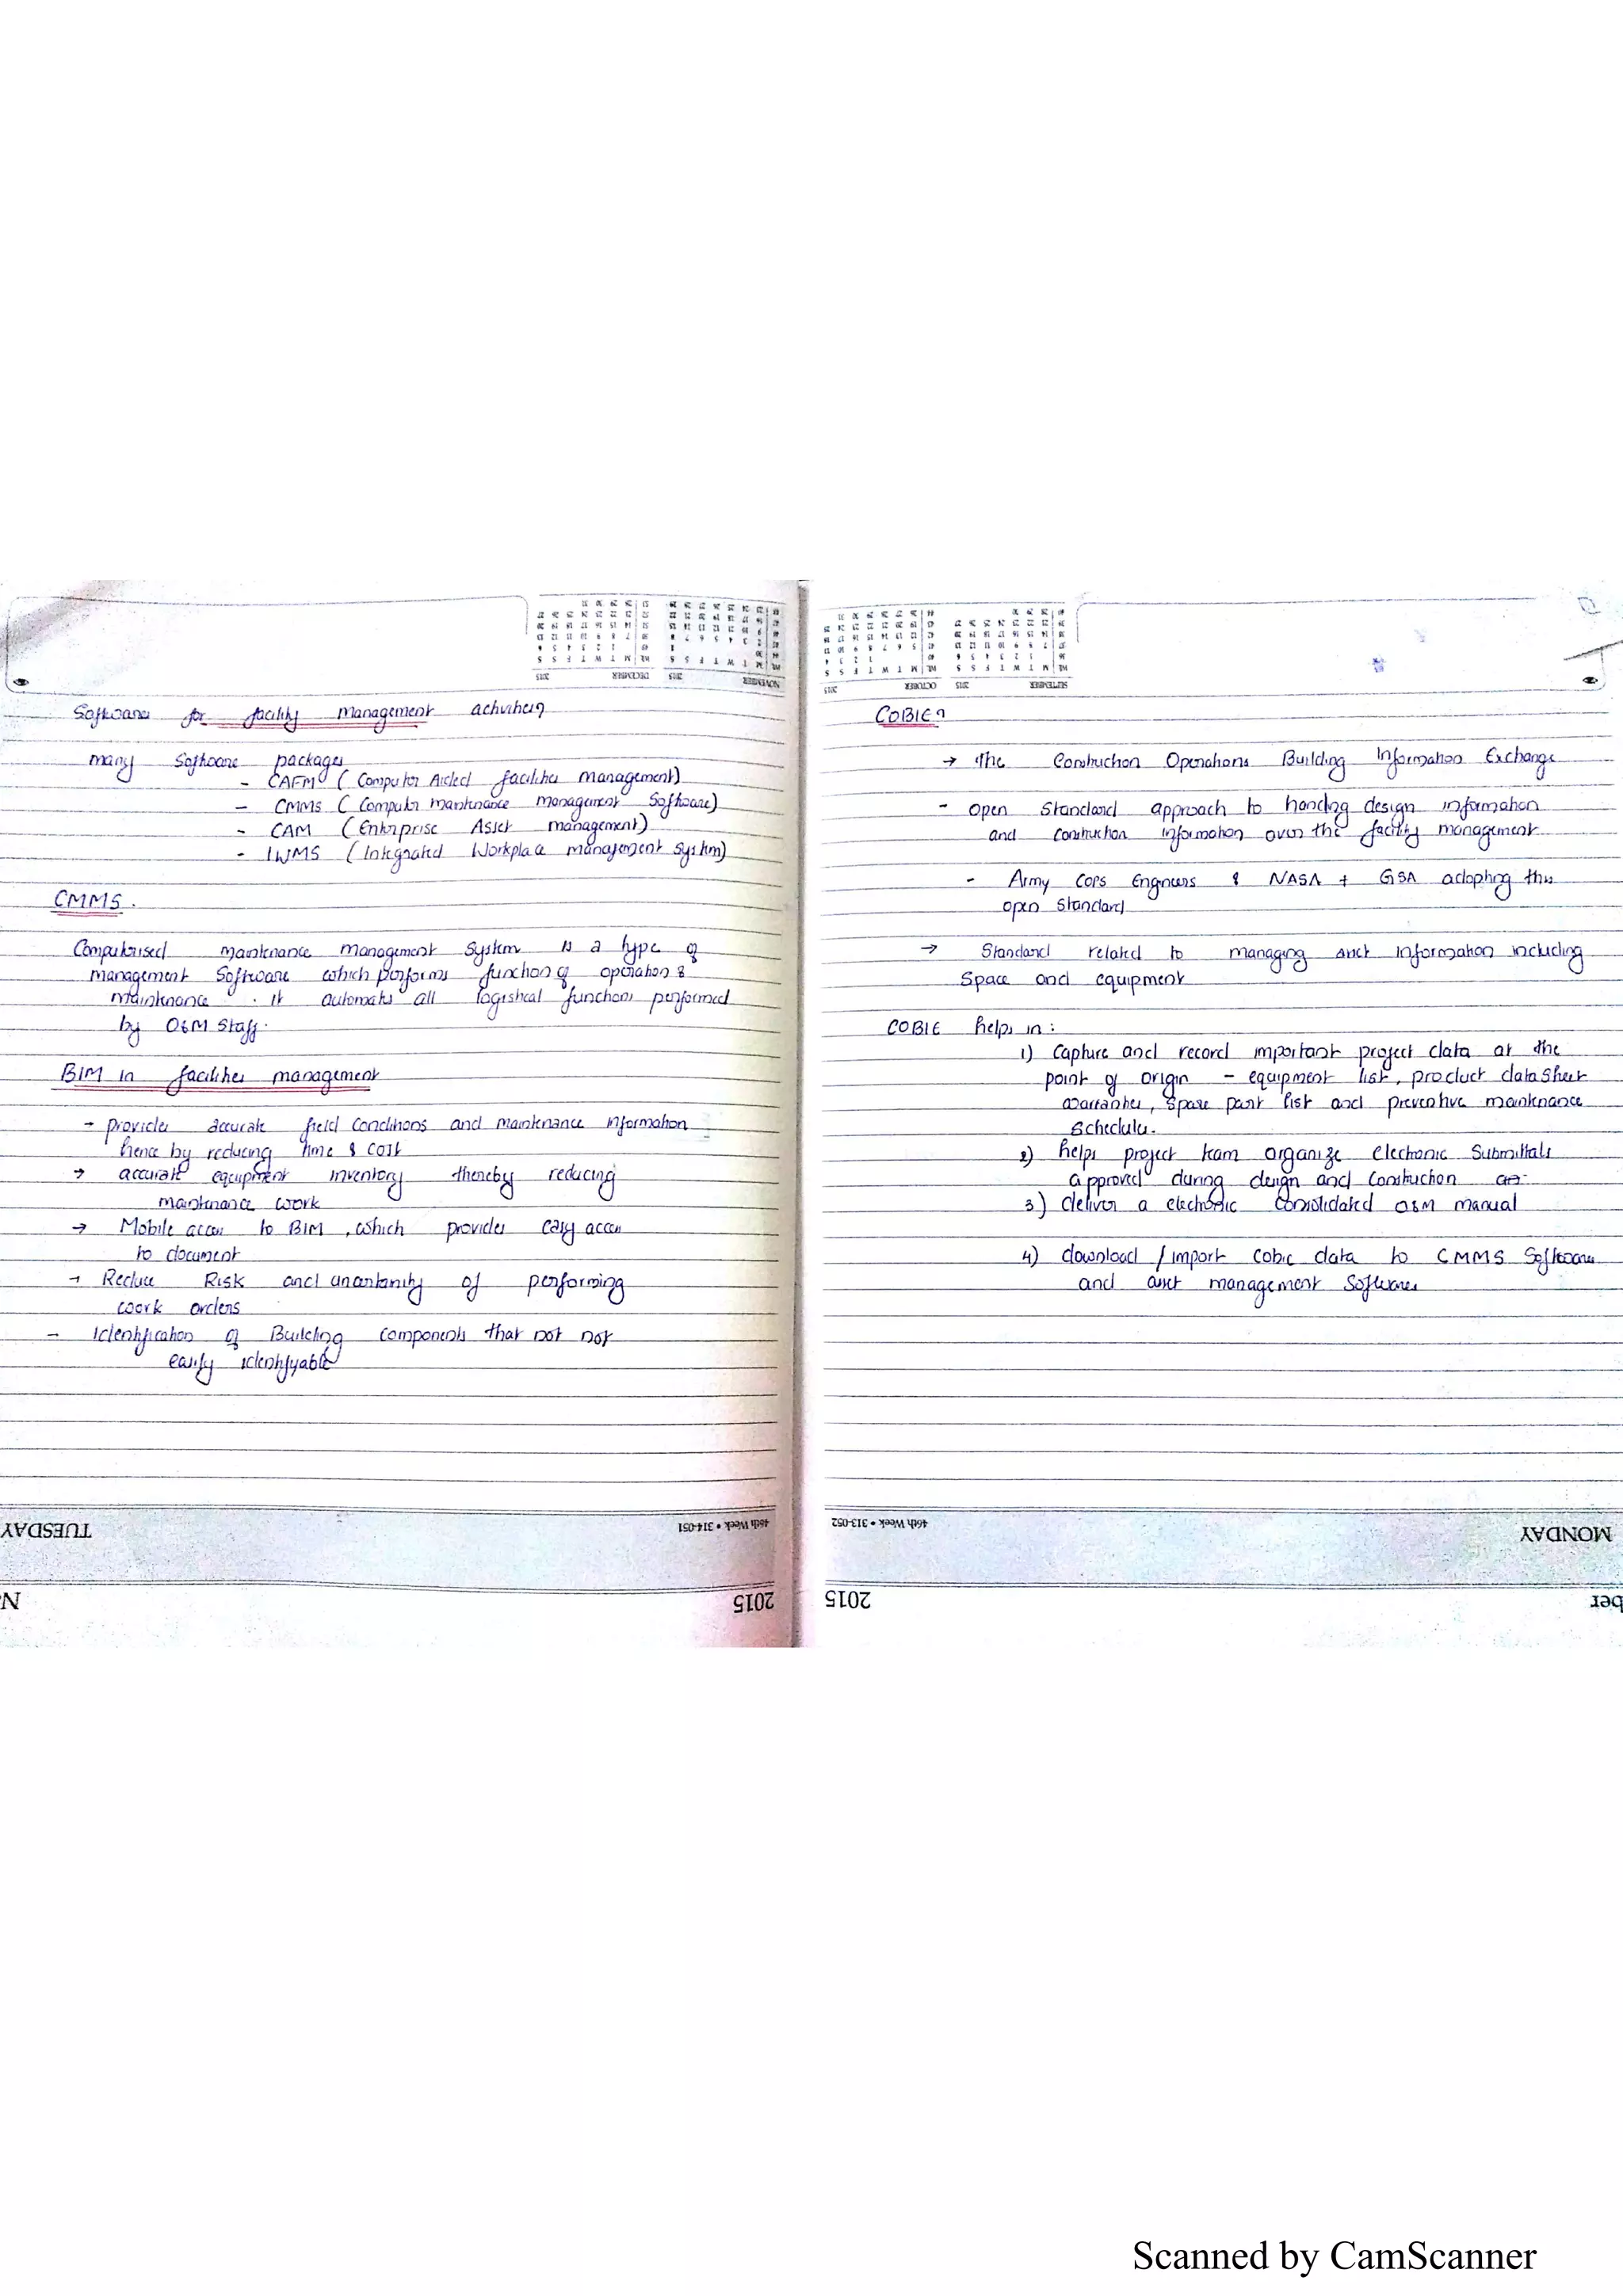 Softwares for facility management activities?
many Software packages
- CAFM (Computer Aided facilities management)
- CMMS (Computer maintenance management Software)
- CAM (Enterprise Asset management)
- IWMS (Integrated Workplace management System)
CMMS.
Computerised maintenance management System is a type of
management Software which performs function of operation &
maintenance. it automates all logistical functions performed
by O&M Staff.
BIM in facilities management
→ provides accurate field Conditions and maintenance information
hence by reducing time & cost
→ accurate equipment inventory thereby reducing
maintenance work
→ Mobile access to BIM, which provides easy access
to document
→ Reduce Risk and uncertainity of performing
work orders
- Identification of Building Components that not not
easily identifyable
TUESDAY
46th Week • 314-051
2015
COBIE?
→ The Construction Operations Building Information Exchange
- Open Standard approach to handing design information
and construction information over the facility management
- Army Cops Engineers & NASA + GSA adopting this
open Standard
→ Standard related to managing asset information including
Space and equipment
COBIE helps in:
1) Capture and record important project data at the
point of origin - equipment list, product data Sheet
warranties, Spare part list and preventive maintenance
Schedule.
2) helps project team organize electronic Submittals
approved during design and Construction
3) deliver a electronic Consolidated O&M manual
4) download / import Cobie data to CMMS Software
and asset management Softwares
46th Week • 313-052
MONDAY
2015
ber
Scanned by CamScanner